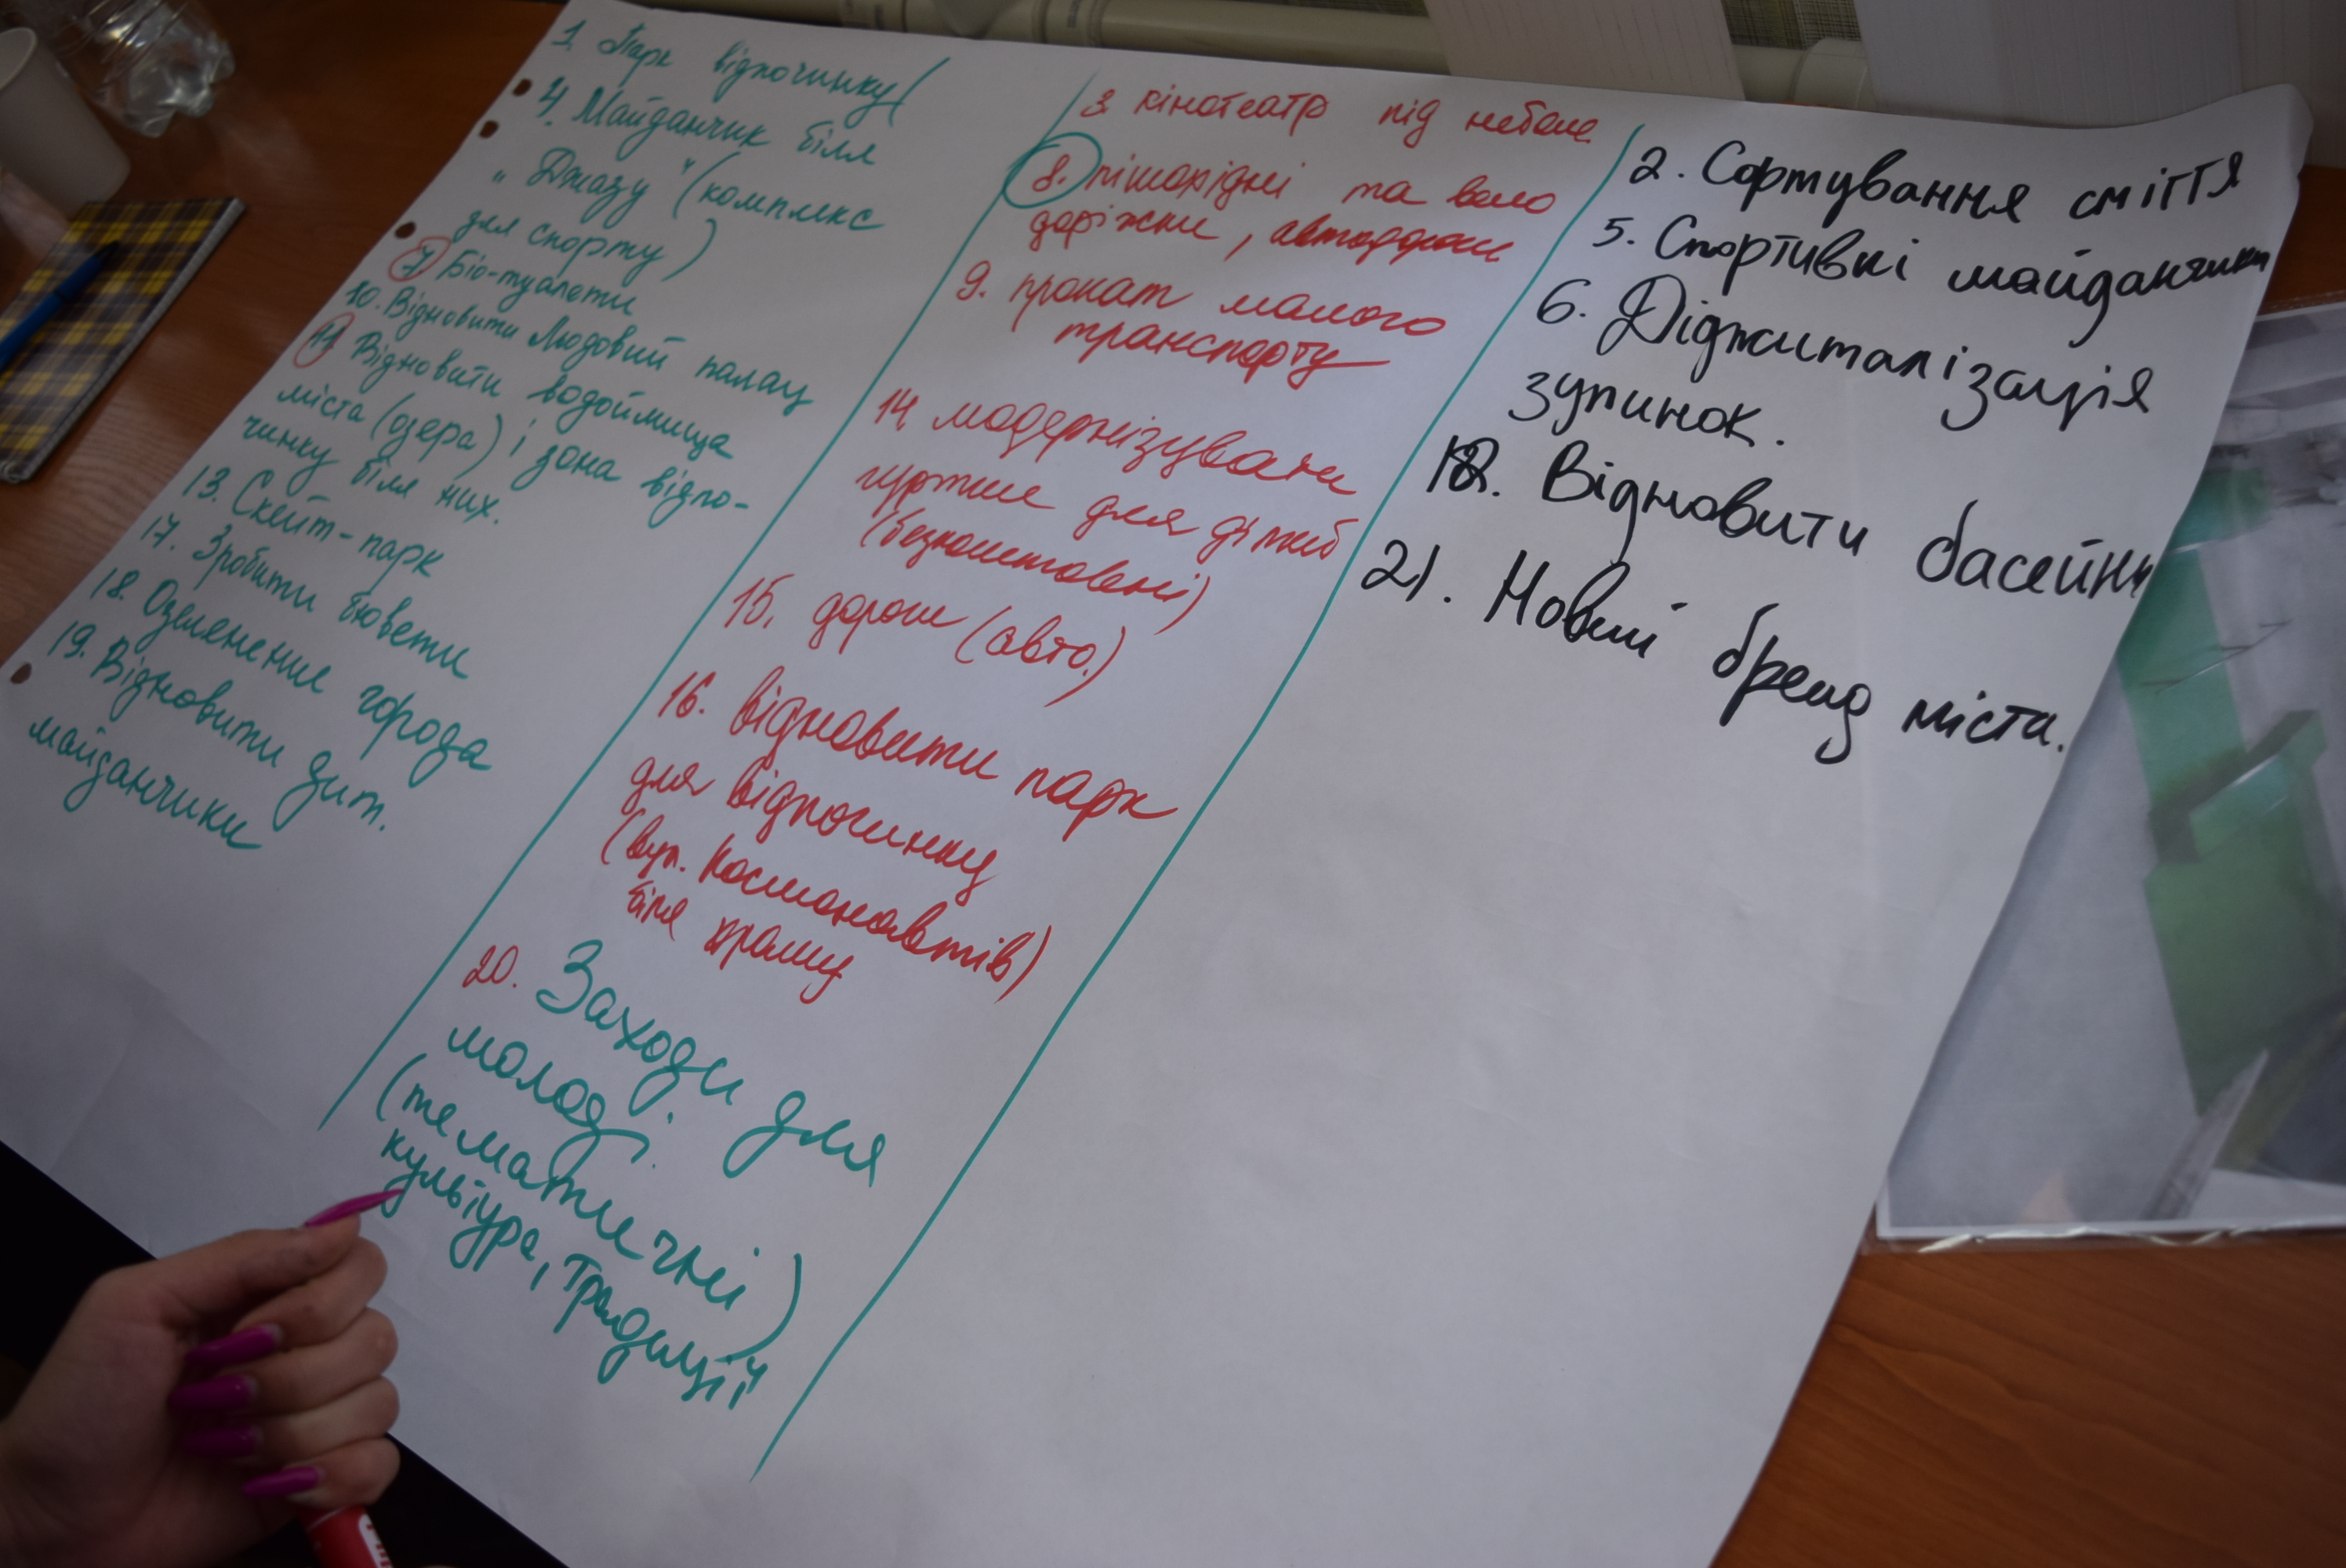 1. Парк відпочинку (
4. Майданчик біля
„Джазу" (комплекс
для спорту)
7 Біо-туалети
10. Відновити Людовий палац
11 Відновити водоймища
міста (озера) і зона відпо-
чинку біля них.
13. Скейт-парк
17. Зробити бювети
18. Озеленение города
19. Відновити дит.
майданчики
3 кінотеатр під небом
8. пішохідні та вело
доріжки, автодороги
9. прокат малого
транспорту
14 модернізувати
гуртки для дітей
(безкоштовні)
15. дороги (авто.)
16. відновити парк
для відпочинку
(вул. Космонавтів)
біля храму
20. Заходи для
молоді
(тематичні)
культура, традиції
2. Сортування сміття
5. Спортивні майданчики
6. Діджиталізація
зупинок.
12. Відновити басейни
21. Новий бренд міста.